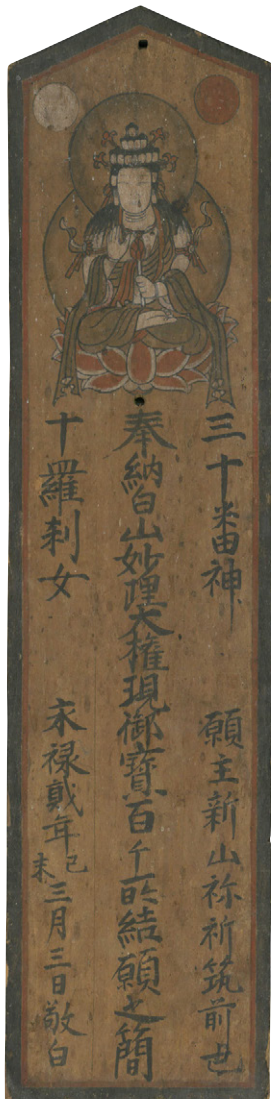 三十番神 願主新山祢祈筑前
奉納白山妙理大權現御寶百千所結願之簡
十羅刹女 永禄貳年己未三月三日敬白